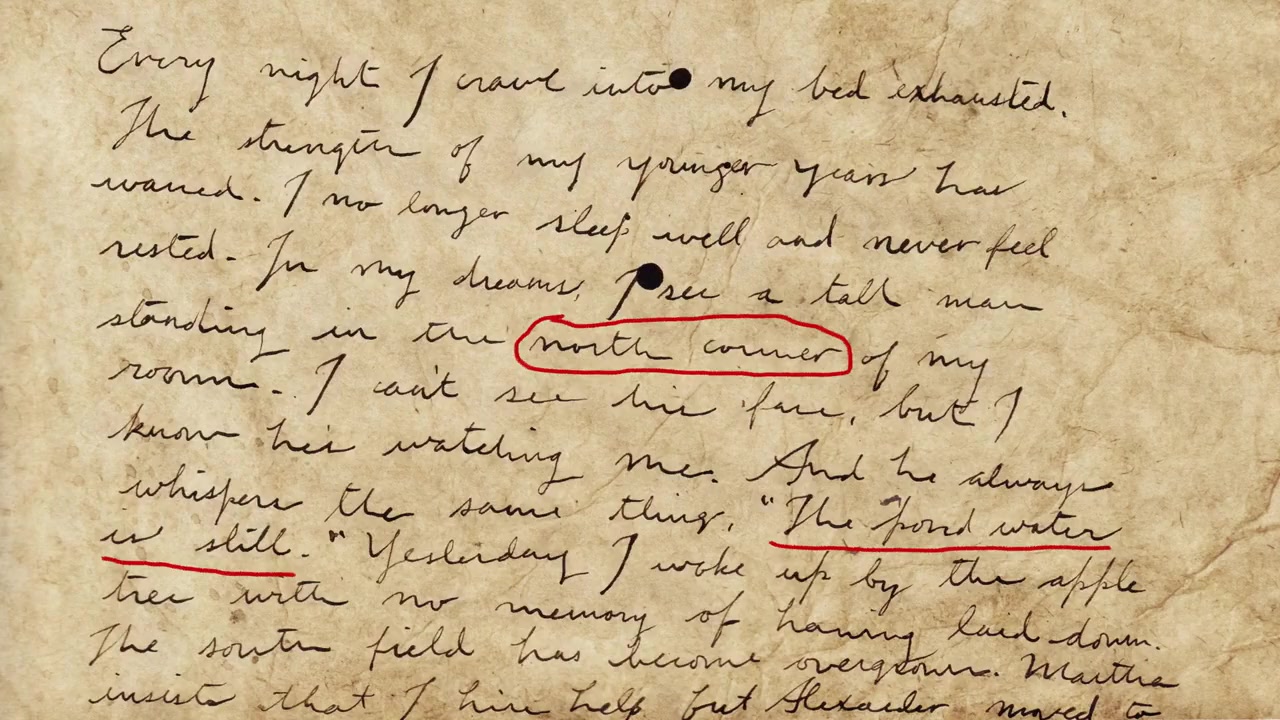 Every night I crawl into my bed exhausted.
The strength of my younger years has
waned. I no longer sleep well and never feel
rested. In my dreams, I see a tall man
standing in the north corner of my
room. I can't see his face, but I
know he's watching me. And he always
whispers the same thing. "The pond water
is still." Yesterday I woke up by the apple
tree with no memory of having laid down.
The south field has become overgrown. Martha
insists that I hire help but Alexander moved to